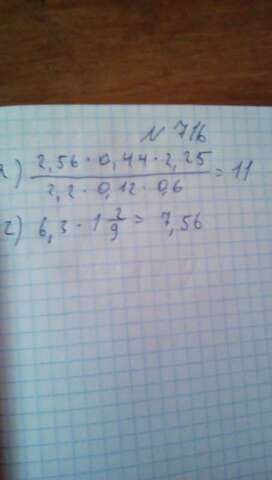 № 716
1) 2,56 · 0,44 · 2,25 / 2,2 · 0,12 · 0,6 = 11
2) 6,3 · 1 2/9 = 7,56